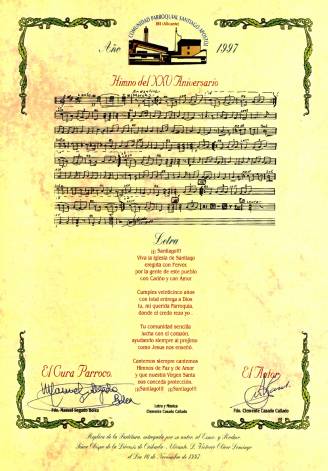 COMUNIDAD PARROQUIAL SANTIAGO APOSTOL
IBI (Alicante)
Año 1997
Himno del XXV Aniversario
Letra
¡¡ Santiago!!!
Viva la Iglesia de Santiago
eregida con Fervor
por la gente de este pueblo
con Cariño y con Amor
Cumples veinticinco años
con total entrega a Dios
tu, mi querida Parroquia,
donde el credo rezo yo
Tu comunidad sencilla
lucha con el corazón,
ayudando siempre al prójimo
como Jesus nos enseñó.
Cantemos siempre cantemos
Himnos de Paz y de Amor
y que nuestra Virgen Santa
nos conceda protección.
¡¡¡Santiago!!! ¡¡¡Santiago!!!
El Cura Parroco.
El Autor
Fdo. Manuel Segado Bolea
Letra y Música
Clemente Casado Collado
Fdo. Clemente Casado Collado
Replica de la Partitura, entregada por su autor, al Excmo. y Rvdmo.
Señor Obispo de la Diócesis de Orihuela - Alicante. D. Victorio Oliver Domingo
el Dia 16 de Noviembre de 1997